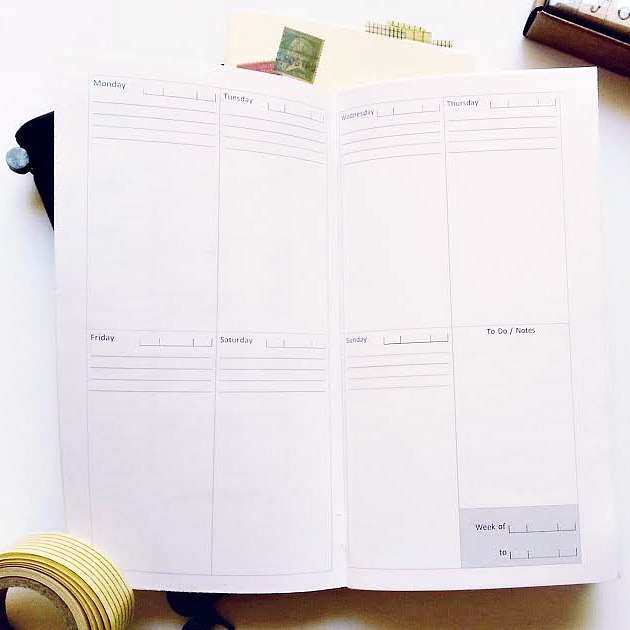 Monday
Tuesday
Wednesday
Thursday
Friday
Saturday
Sunday
To Do / Notes
Week of
to